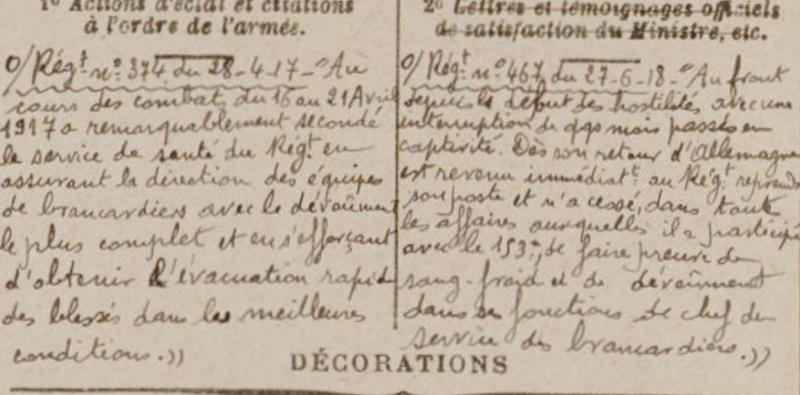 1° Actions d'éclat et citations
à l'ordre de l'armée.
O/ Régt no: 374 du 28-4-17-"Au
cours des combats, du 16 au 21 Avril
1917 a remarquablement secondé
le service de santé du Régt en
assurant la direction des équipes
de brancardiers avec le dévoûment
le plus complet et en s'efforçant
d'obtenir l'évacuation rapide
des blessés dans les meilleures
conditions.))
2° Lettres et témoignages officiels
de satisfaction du Ministre, etc.
O/ Régt no: 467, du 27-6-18-"Au front
depuis le début des hostilités avec une
interruption de qqs mois passés en
captivité. Dès son retour d'Allemagne
est revenu immédiatt au Régt reprendre
son poste et n'a cessé, dans toutes
les affaires auxquelles il a participé
avec le 153e, de faire preuve de
sang-froid et de dévoûment
dans ses fonctions de chef du
service des brancardiers.))
DÉCORATIONS